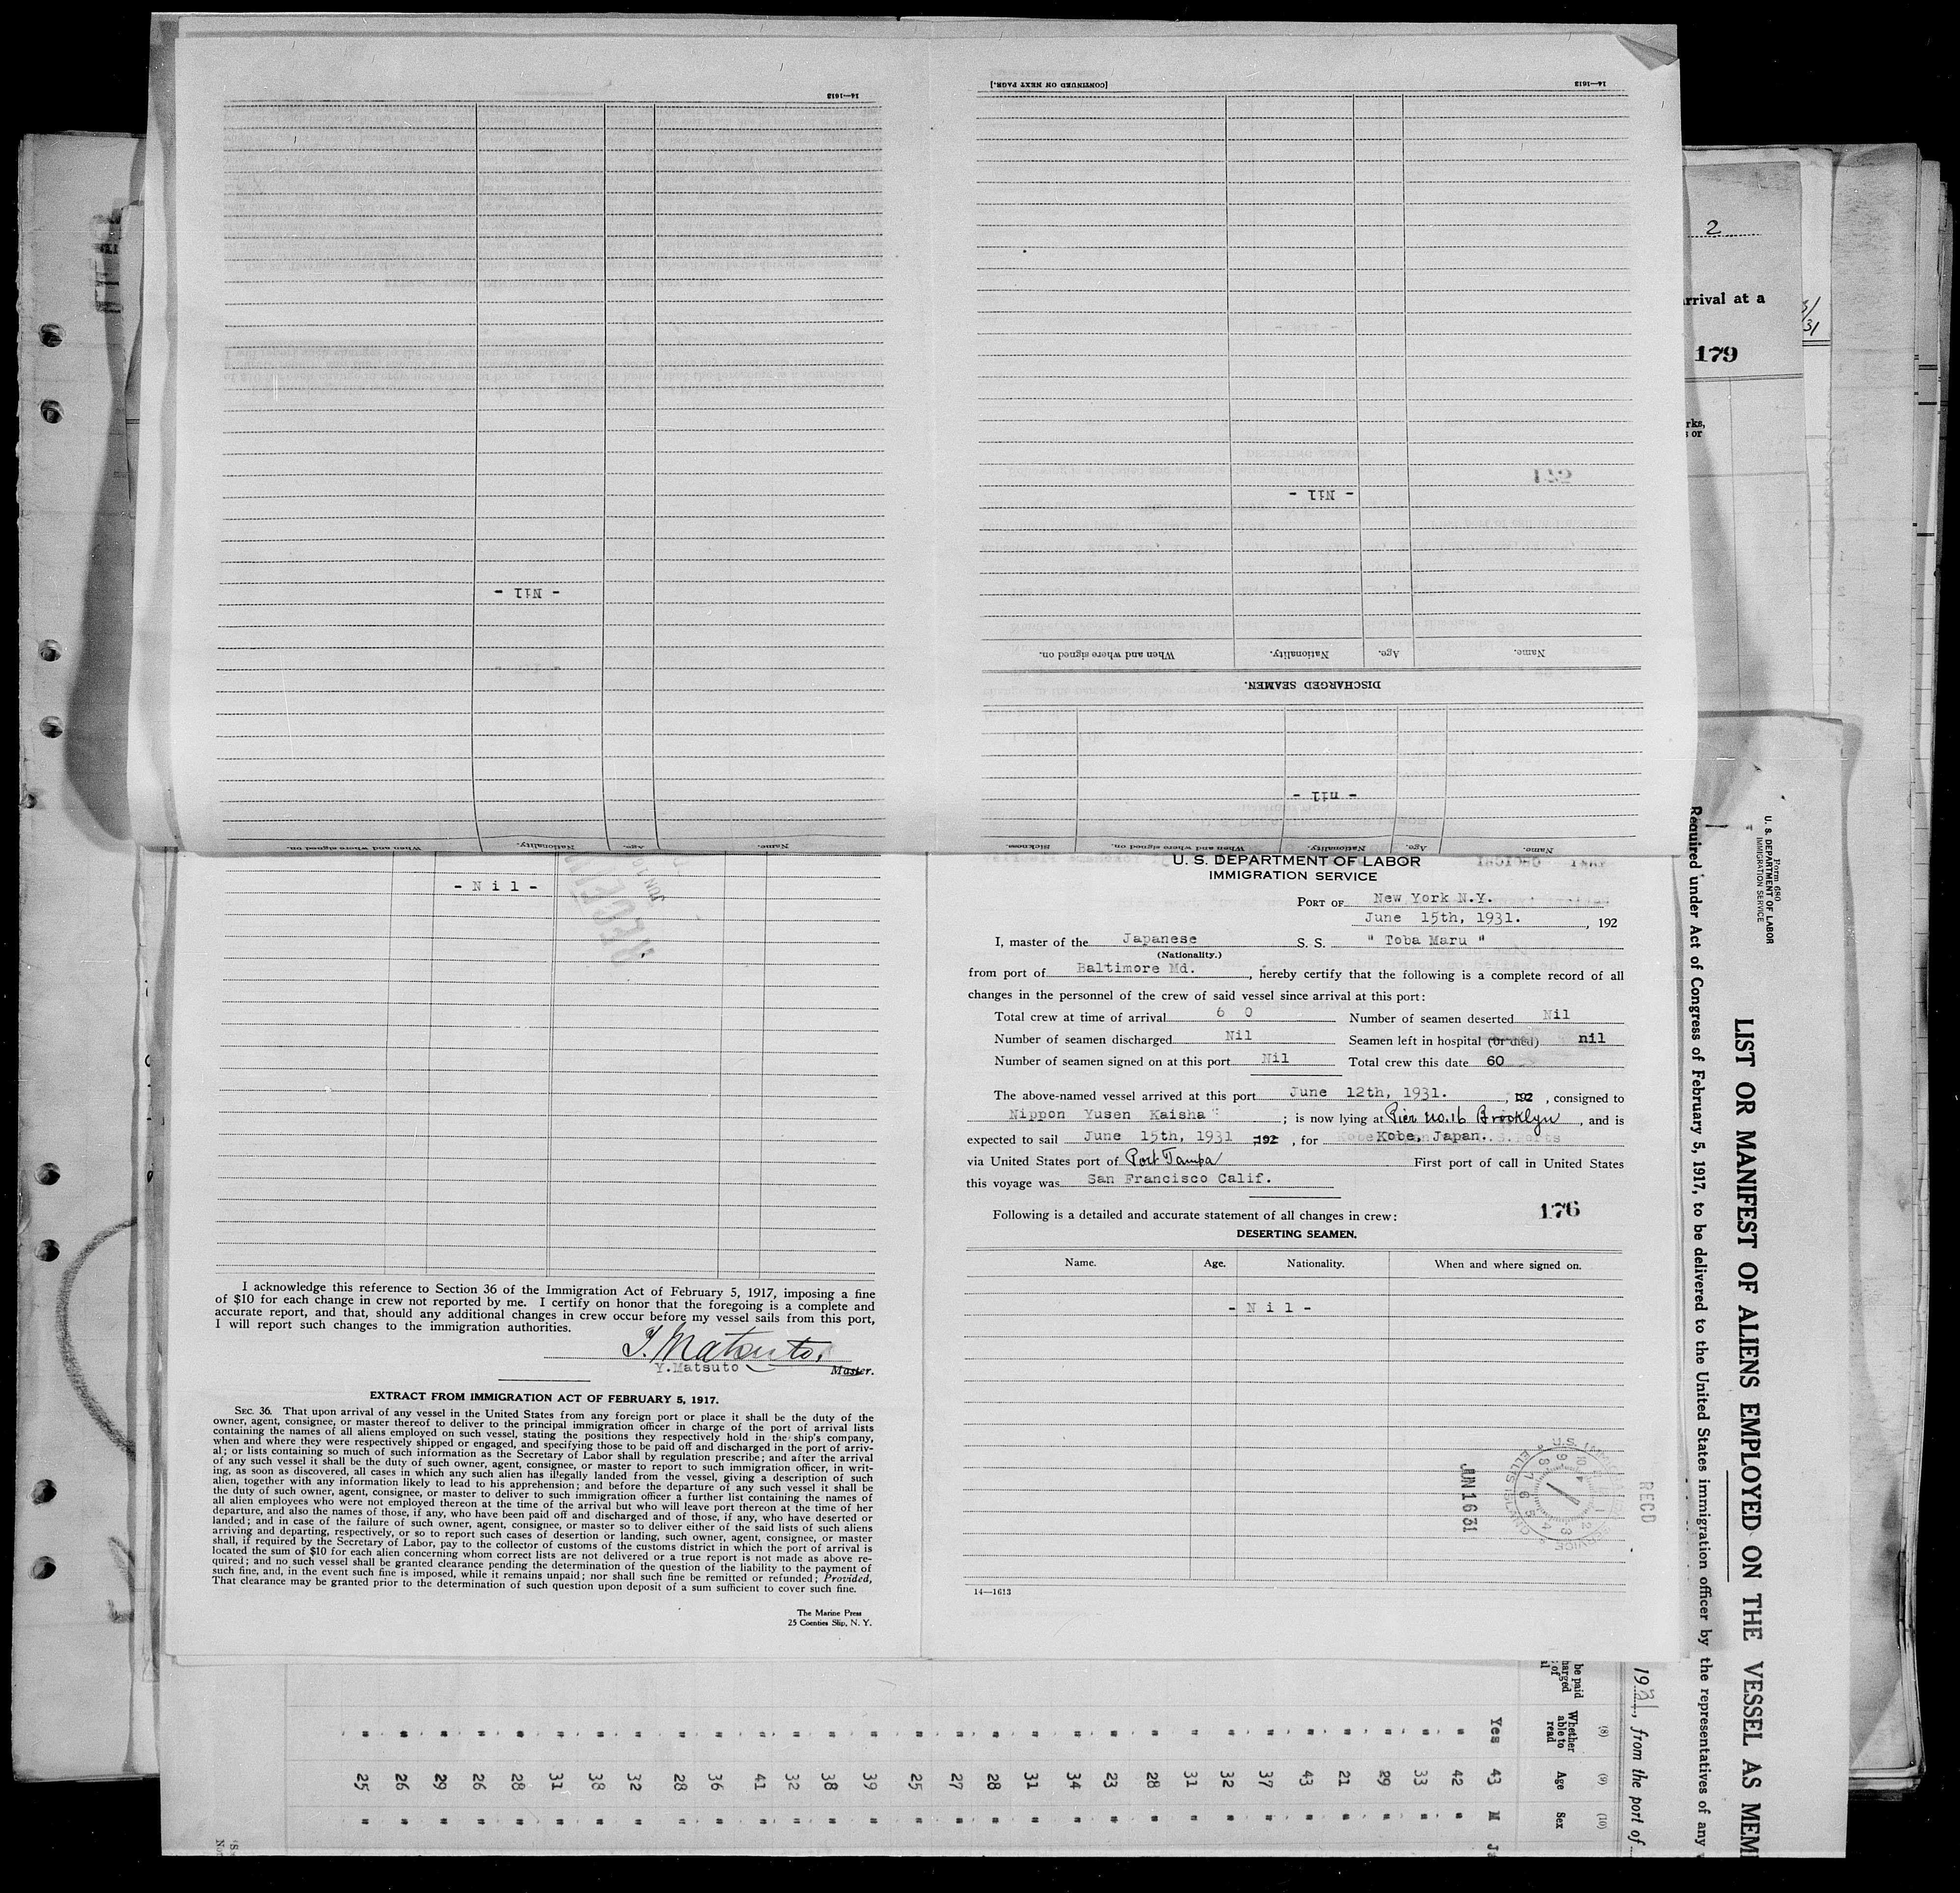 14—1613
[CONTINUED ON NEXT PAGE.]
14—1613
- Nil -
- Nil -
When and where signed on. Nationality. Age. Name.
DISCHARGED SEAMEN.
- nil -
When and where signed on. Nationality. Age. Name.
Sickness. When and where signed on. Nationality. Age. Name.
2
rrival at a
179
rks,
s or
31
- N i l -
U. S. DEPARTMENT OF LABOR
IMMIGRATION SERVICE
PORT OF New York N.Y.
June 15th, 1931. , 192
I, master of the Japanese S. S. " Toba Maru "
(Nationality.)
from port of Baltimore Md. , hereby certify that the following is a complete record of all
changes in the personnel of the crew of said vessel since arrival at this port:
Total crew at time of arrival 6 0 Number of seamen deserted Nil
Number of seamen discharged Nil Seamen left in hospital (or died) nil
Number of seamen signed on at this port Nil Total crew this date 60
The above-named vessel arrived at this port June 12th, 1931. , 192 , consigned to
Nippon Yusen Kaisha ; is now lying at Pier no. 16 Brooklyn , and is
expected to sail June 15th, 1931 , 192 , for Kobe, Japan.
via United States port of Port Tampa First port of call in United States
this voyage was San Francisco Calif.
Following is a detailed and accurate statement of all changes in crew: 176
DESERTING SEAMEN.
Name. Age. Nationality. When and where signed on.
- N i l -
JUN 16 31
RECD
14—1613
I acknowledge this reference to Section 36 of the Immigration Act of February 5, 1917, imposing a fine
of $10 for each change in crew not reported by me. I certify on honor that the foregoing is a complete and
accurate report, and that, should any additional changes in crew occur before my vessel sails from this port,
I will report such changes to the immigration authorities.
Y. Matsuto
Y.Matsuto Master.
EXTRACT FROM IMMIGRATION ACT OF FEBRUARY 5, 1917.
SEC. 36. That upon arrival of any vessel in the United States from any foreign port or place it shall be the duty of the
owner, agent, consignee, or master thereof to deliver to the principal immigration officer in charge of the port of arrival lists
containing the names of all aliens employed on such vessel, stating the positions they respectively hold in the ship's company,
when and where they were respectively shipped or engaged, and specifying those to be paid off and discharged in the port of arriv-
al; or lists containing so much of such information as the Secretary of Labor shall by regulation prescribe; and after the arrival
of any such vessel it shall be the duty of such owner, agent, consignee, or master to report to such immigration officer, in writ-
ing, as soon as discovered, all cases in which any such alien has illegally landed from the vessel, giving a description of such
alien, together with any information likely to lead to his apprehension; and before the departure of any such vessel it shall be
the duty of such owner, agent, consignee, or master to deliver to such immigration officer a further list containing the names of
all alien employees who were not employed thereon at the time of the arrival but who will leave port thereon at the time of her
departure, and also the names of those, if any, who have been paid off and discharged and of those, if any, who have deserted or
landed; and in case of the failure of such owner, agent, consignee, or master so to deliver either of the said lists of such aliens
arriving and departing, respectively, or so to report such cases of desertion or landing, such owner, agent, consignee, or master
shall, if required by the Secretary of Labor, pay to the collector of customs of the customs district in which the port of arrival is
located the sum of $10 for each alien concerning whom correct lists are not delivered or a true report is not made as above re-
quired; and no such vessel shall be granted clearance pending the determination of the question of the liability to the payment of
such fine, and, in the event such fine is imposed, while it remains unpaid; nor shall such fine be remitted or refunded; Provided,
That clearance may be granted prior to the determination of such question upon deposit of a sum sufficient to cover such fine.
The Marine Press
25 Coenties Slip, N. Y.
Form 680
U. S. DEPARTMENT OF LABOR
IMMIGRATION SERVICE
LIST OR MANIFEST OF ALIENS EMPLOYED ON THE VESSEL AS MEM
Required under Act of Congress of February 5, 1917, to be delivered to the United States immigration officer by the representatives of any
1931, from the port of
(8) (9) (10)
Whether able to read Age Sex
Yes 43 M
" 42 "
" 33 "
" 29 "
" 21 "
" 43 "
" 37 "
" 32 "
" 31 "
" 28 "
" 23 "
" 34 "
" 31 "
" 28 "
" 27 "
" 25 "
" 39 "
" 38 "
" 32 "
" 41 "
" 36 "
" 28 "
" 32 "
" 38 "
" 31 "
" 28 "
" 26 "
" 29 "
" 26 "
" 25 "